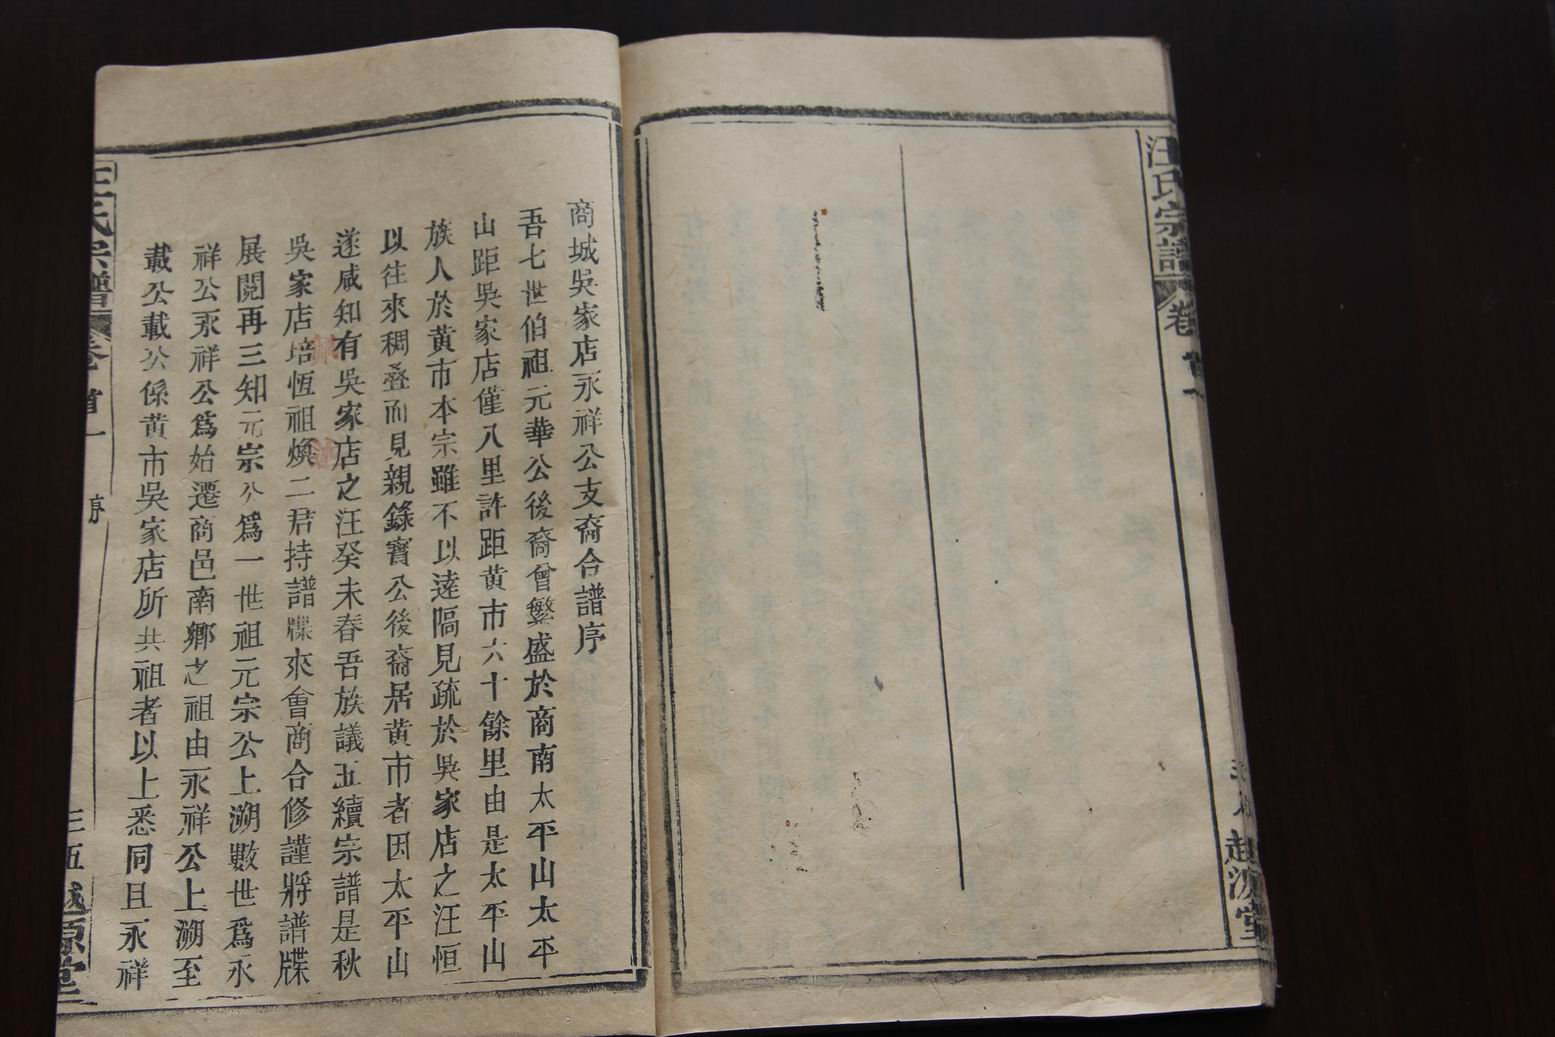 汪氏宗譜
卷首一
越源堂
商城吳家店永祥公支裔合譜序
吾七世伯祖元華公後裔曾繁盛於商南太平山太平
山距吳家店僅八里許距黃市六十餘里由是太平山
族人於黃市本宗雖不以逺隔見疏於吳家店之汪恒
以往來稠叠而見親錄寳公後裔居黃市者因太平山
遂咸知有吳家店之汪癸未春吾族議五續宗譜是秋
吳家店培恆祖煥二君持譜牒來會商合修謹將譜牒
展閱再三知元宗公爲一世祖元宗公上溯數世爲永
祥公永祥公爲始遷商邑南鄉之祖由永祥公上溯至
載公載公係黃市吳家店所共祖者以上悉同且永祥
汪氏宗譜
卷首一
序
三五
越源堂